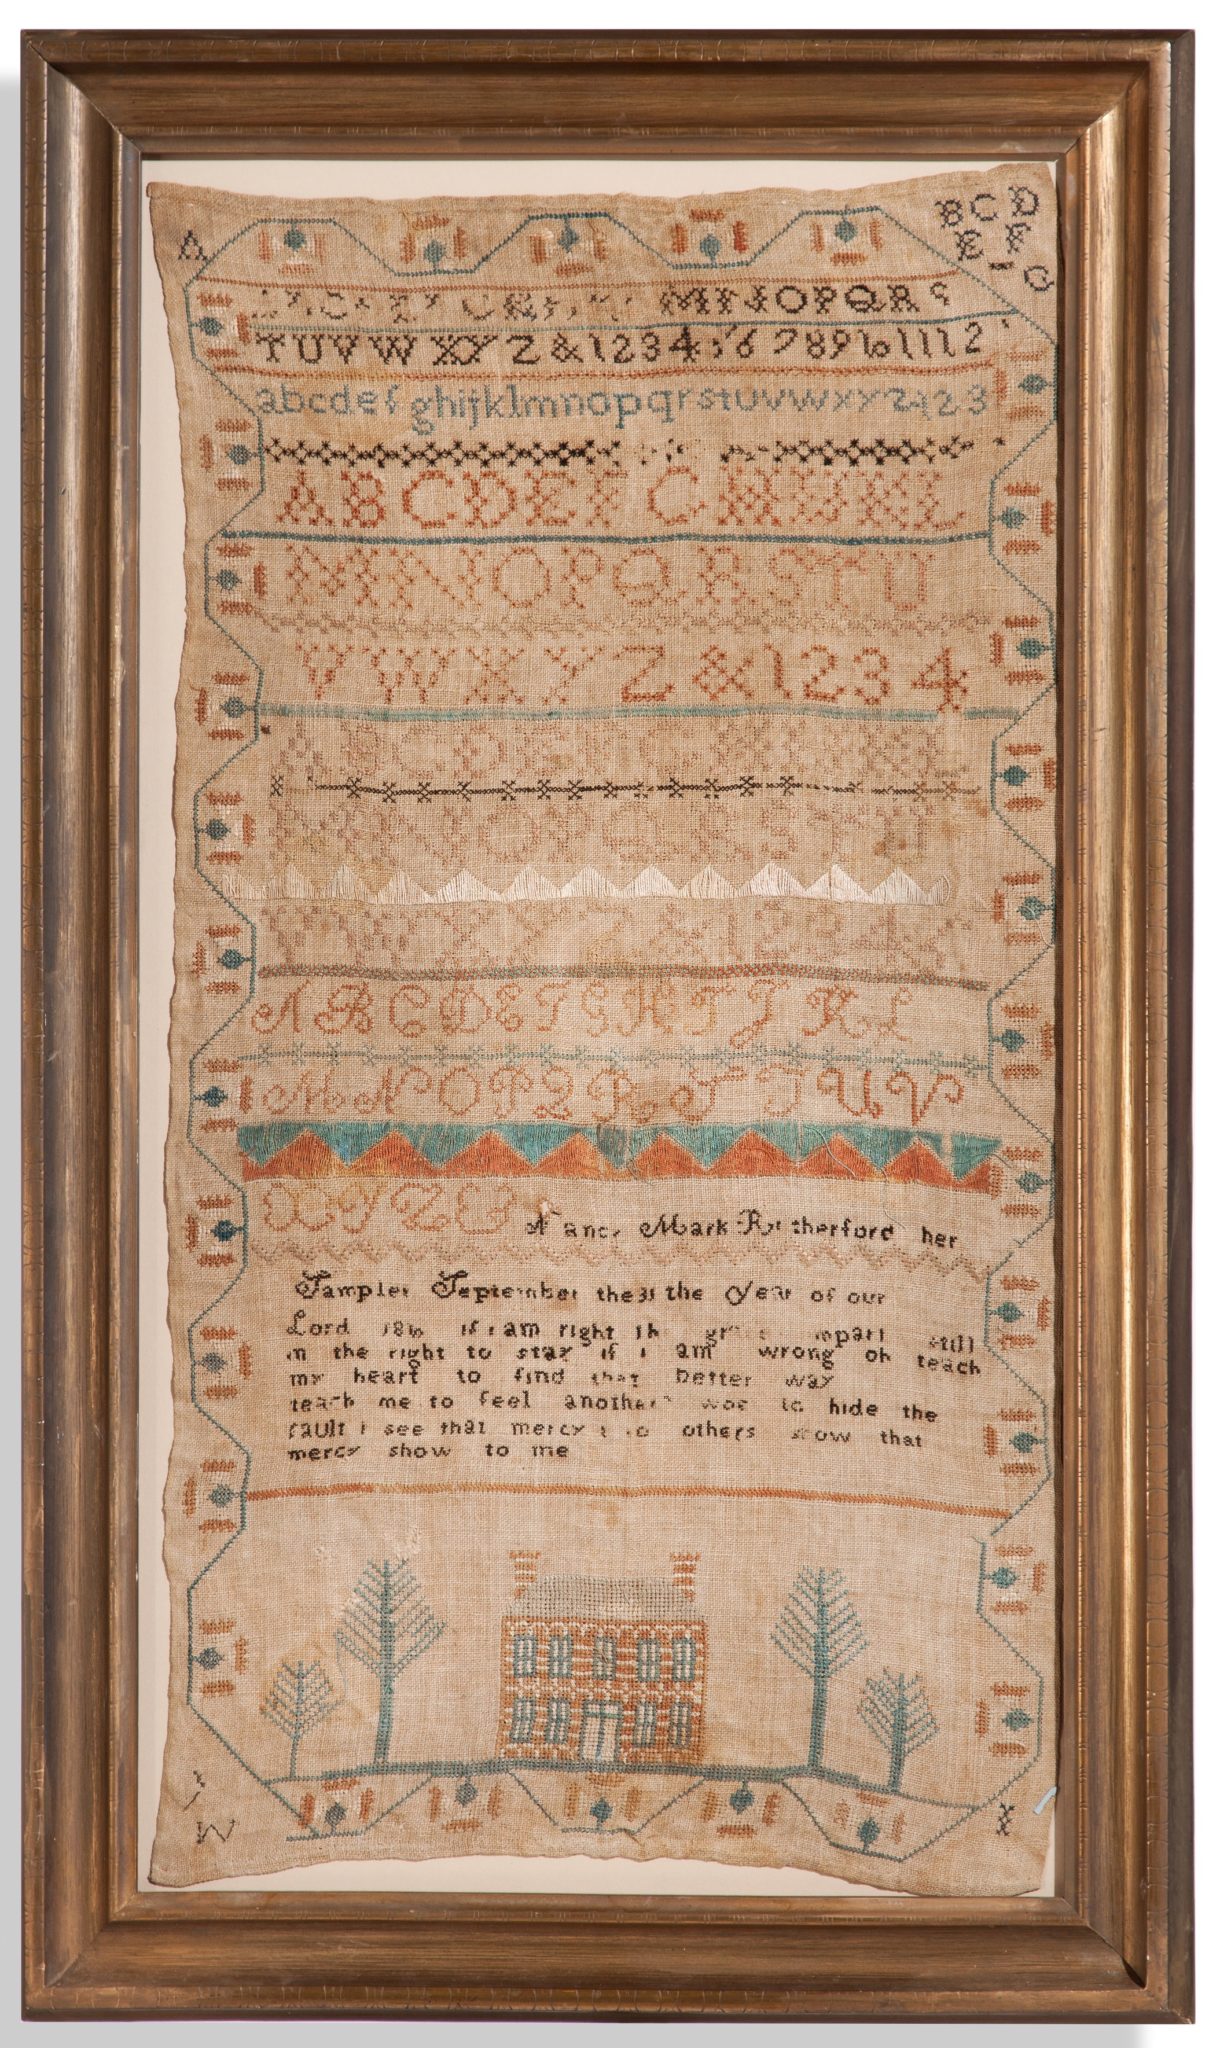 A
B C D
E F
G
M N O P Q R S
T U V W X Y Z & 1 2 3 4 5 6 7 8 9 10 11 12
a b c d e f g h i j k l m n o p q r s t u v w x y z 1 2 3
A B C D E F G H I J K L
M N O P Q R S T U
V W X Y Z & 1 2 3 4
A B C D E F G H I K
M N O P Q R S T U
V W X Y Z & 1 2 3 4
A B C D E F G H I J K L
M N O P Q R S T U V
X Y Z &
Nancy Mark Rutherford her
Sampler September the 31 the Year of our
Lord if i am right thy grace impart still
in the right to stay if i am wrong oh teach
my heart to find that better way
teach me to feel anothers woe to hide the
fault i see that mercy i to others show that
mercy show to me
W